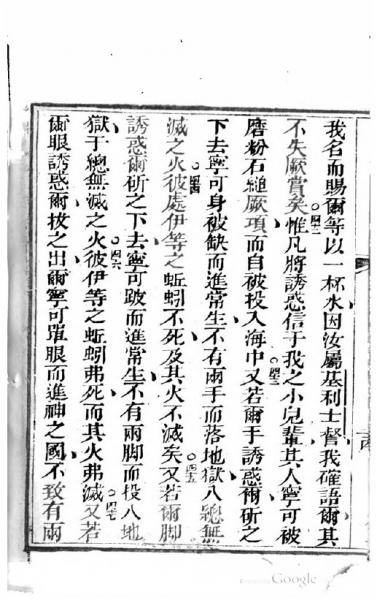 我名而賜爾等以一杯水因汝屬基利士督我確語爾其
不失厥賞矣○四二惟凡將誘惑信于我之小兒輩其人寧可被
磨粉石縋厥項而自被投入海中○四三又若爾手誘惑爾斫之
下去寧可身被缺而進常生不有兩手而落地獄入總無
滅之火○四四彼處伊等之蚯蚓不死及其火不滅矣○四五又若爾脚
誘惑爾斫之下去寧可跛而進常生不有兩脚而投入地
獄于總無滅之火○四六彼伊等之蚯蚓弗死而其火弗滅○四七又若
爾眼誘惑爾拔之出爾寧可單眼而進神之國不致有兩
Google